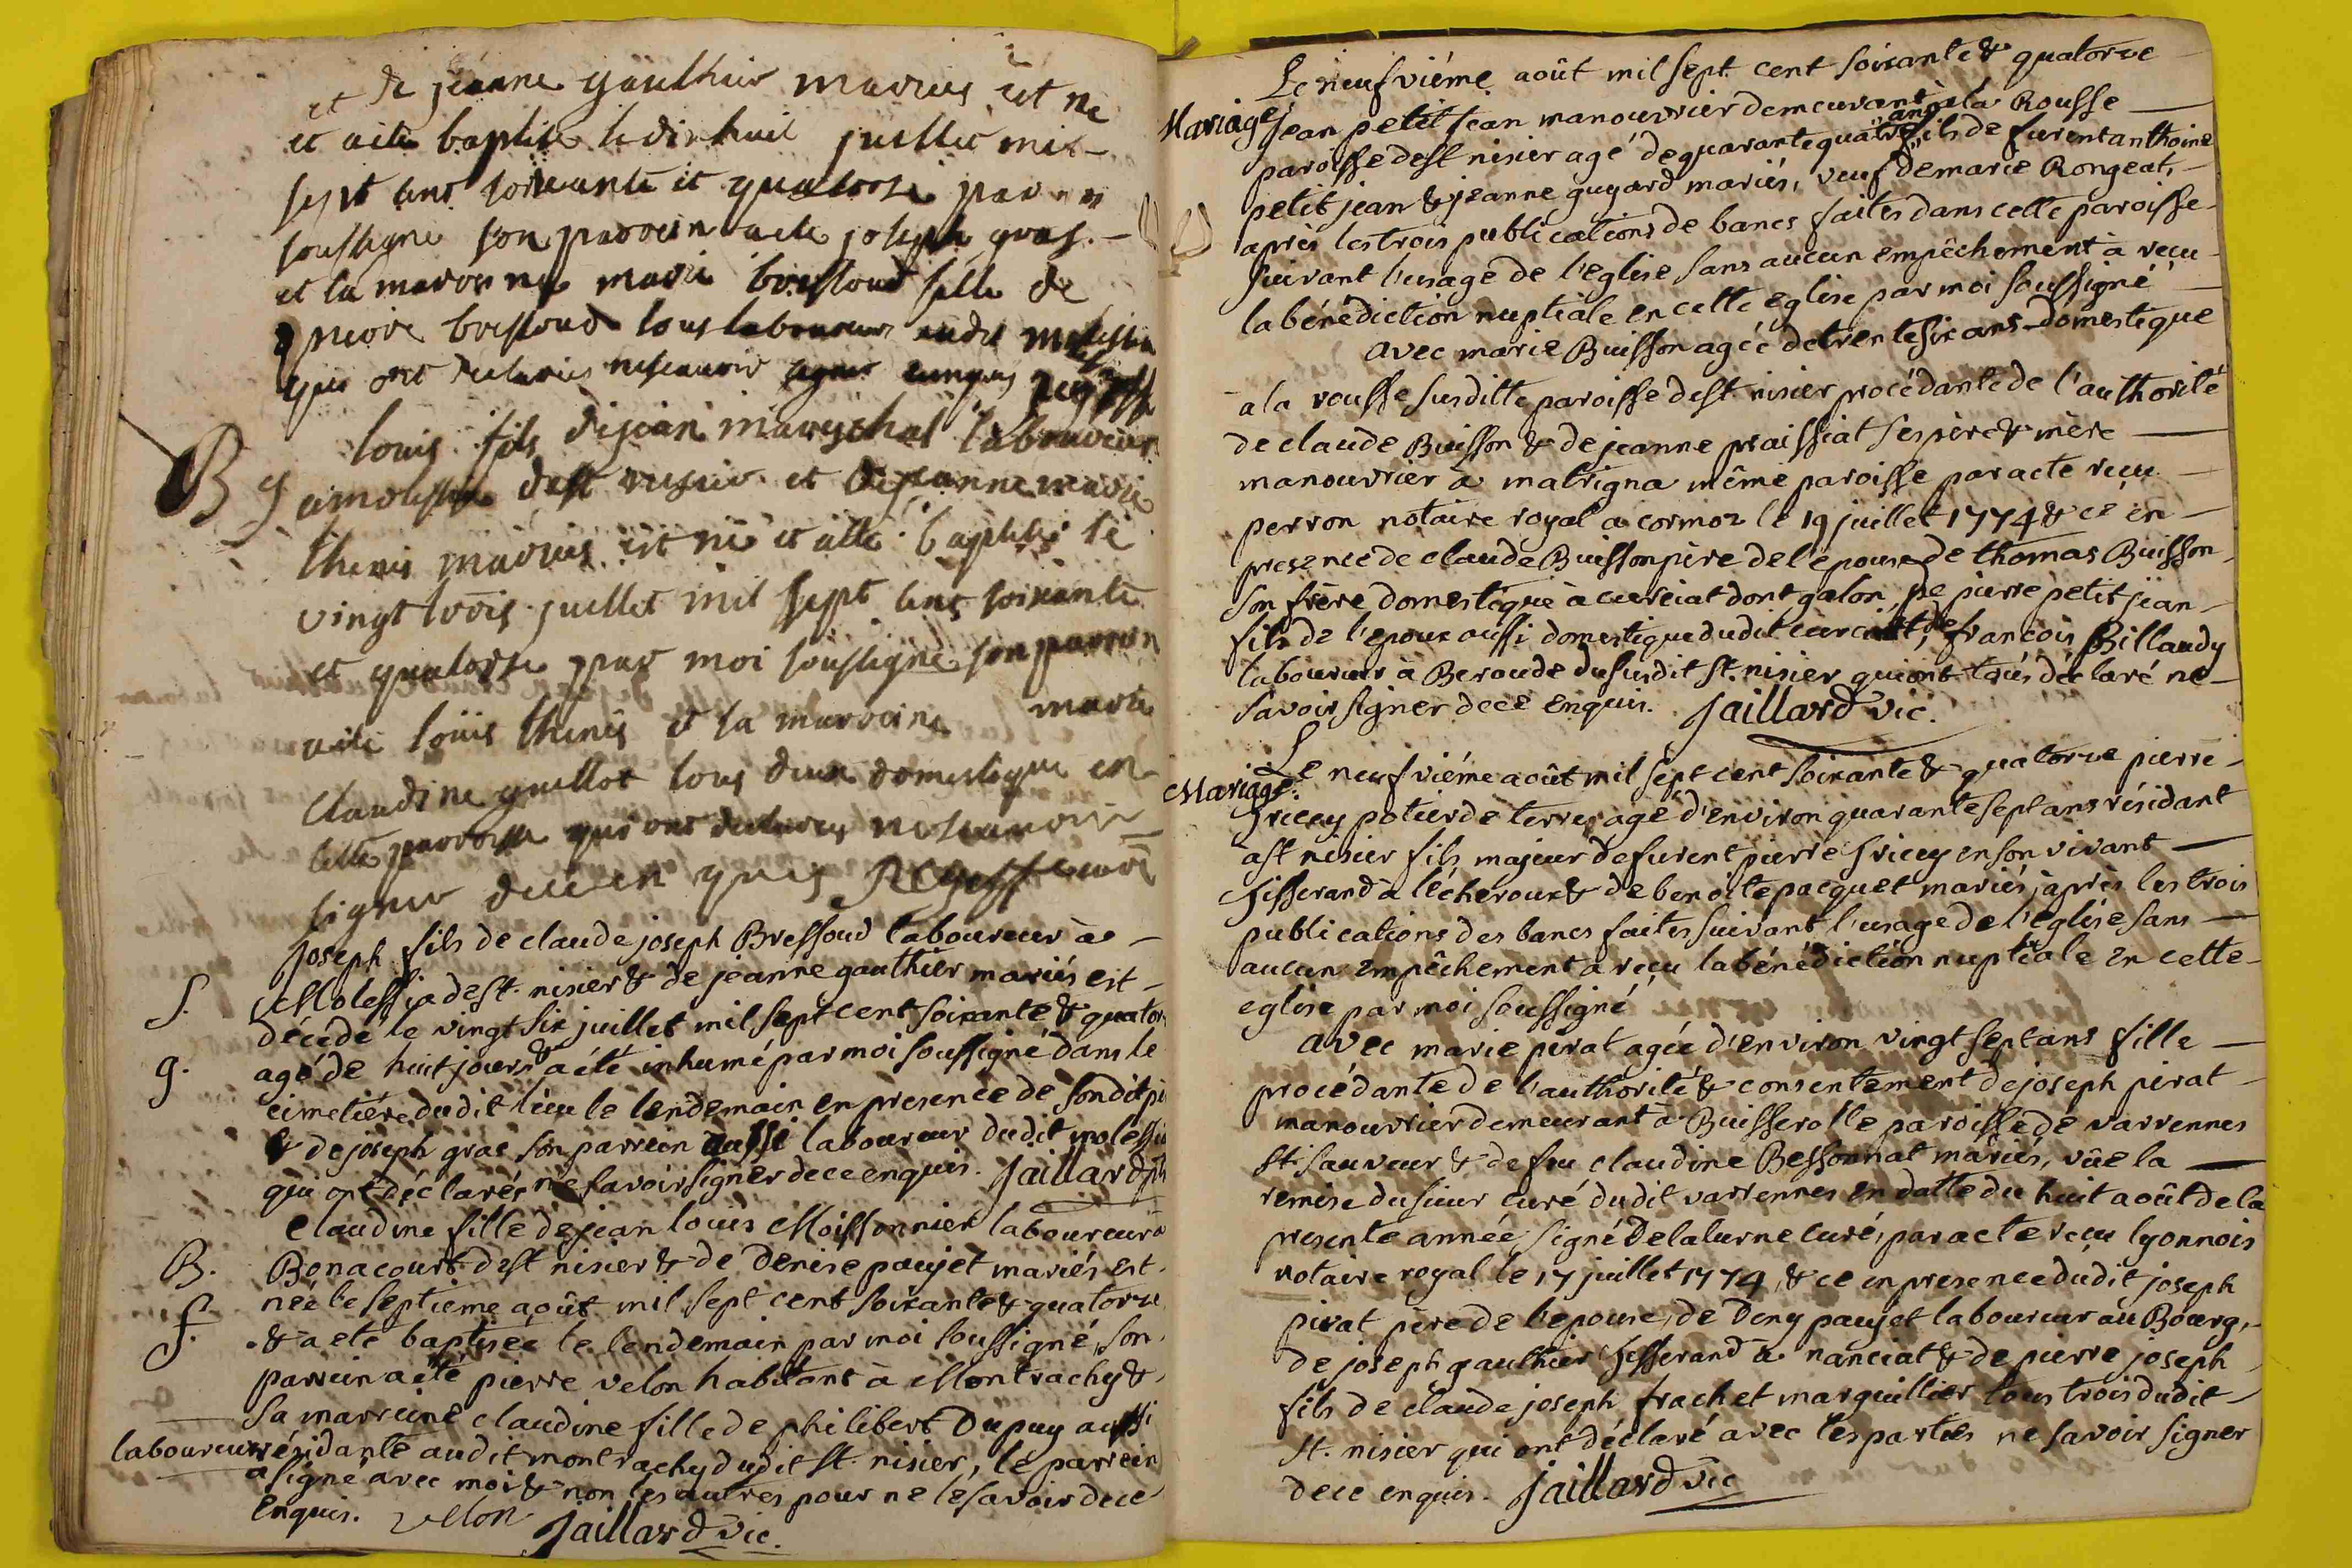 et de jeanne gauthier mariés est né
et a été baptisé le dix huit juillet mil
sept cent soixante et quatorse par
soussigné son parrein a été joseph gras.
et la marorine marie bressoud fille de
pierre bressoud tous laboureurs
qui ont declarés ne scavoir signer enquis
louis fils de jean mareschal laboureur
B g a molessia de st nisier et de jeanne marie
thenis mariés est né et a été baptisé le
vingt trois juillet mil sept cent soixante
et quatorse par moi soussigné son parrein
a été loüis thenis et la maroine marie
claudine guillot tous deux domestique en
cette parroisse qui ont declarés ne scavoir
signer de ce enquis
Joseph fils de claude joseph Bressoud laboureur à
S. Molessia de st. nisier & de jeanne gauthier mariés est
décédé le vingt six juillet mil sept cent soixante & quator
g. agé de huit jours & a été inhumé par moi soussigné dans le
cimetière dudit lieu le lendemain en presence de sondit pè
& de joseph gras son parrein aussi laboureur dudit molessia
qui ont déclarés ne savoir signer de ce enquis. Jaillard
claudine fille de jean louis Moissonnier laboureur à
B. Bonacourt de st nisier & de Denise paujet mariés est
née le septieme août mil sept cent soixante & quatorze
f. & a eté baptisée le lendemain par moi soussigné, son
parrein a été pierre velon habitant à Montrachy &
sa marreine claudine fille de philibert Dupuy aussi
laboureur résidante audit montrachy dudit st. nisier, le parrein
a signé avec moi & non les autres pour ne le savoir de ce
enquis. velon Jaillard vic.
Le neufviéme août mil sept cent soixante & quatorze
Mariage Jean petit jean manouvrier demeurant à la Rousse
paroisse de st nisier agé de quarante quatre ans fils de furent anthoine
petit jean & jeanne guyard mariés, veuf de marie Rongeat,
après les trois publications de bancs faites dans cette paroisse
suivant l'usage de l'eglise sans aucun empêchement à reçu
la bénédiction nuptiale en cette eglise par moi soussigné
avec marie Buisson agée de trente six ans domestique
a la rousse susditte paroisse de st. nisier procédante de l'authorité
de claude Buisson & de jeanne praissiat ses père & mère
manouvrier à matrigna même paroisse par acte reçu
perron notaire royal a cormoz le 19 juillet 1774 & ce en
presence de claude Buisson père de l'epouse de thomas Buisson
son frère domestique à curciat dont galon, de pierre petit jean
fils de l'epoux aussi domestique dudit curciat, de françois Billaudy
laboureur à Beroude du susdit st. nisier qui ont tous déclaré ne
savoir signer de ce enquis. Jaillard vic.
Le neufviéme août mil sept cent soixante & quatorze pierre
Mariage. Fricey potier de terre, agé d'environ quarante sept ans résidant
a st nisier fils majeur de furent pierre Fricey en son vivant
Tisserand à l'écheroux & de benoite pacquet mariés, après les trois
publications des bancs faites suivant l'usage de l'eglise sans
aucun empêchement a reçu la bénédiction nuptiale en cette
eglise par moi soussigné
avec marie pirat agée d'environ vingt sept ans fille
procédante de l'authorité & consentement de joseph pirat
manouvrier demeurant à Buisserolle paroisse de varrennes
st. sauveur & de feu claudine Bessonnat mariés, vüe la
remise du sieur curé dudit varrennes en datte du huit août de la
presente année, signé Delalurne curé, par acte reçu lyonnois
notaire royal le 17 juillet 1774, & ce en presence dudit joseph
pirat père de l'epouse, de Deny paujet laboureur au Bourg,
de joseph gauthier Tisserand à nanciat & de pierre joseph
fils de claude joseph frachet marguillier tous trois dudit
st. nisier qui ont déclaré avec les parties ne savoir signer
de ce enquis. Jaillard vic